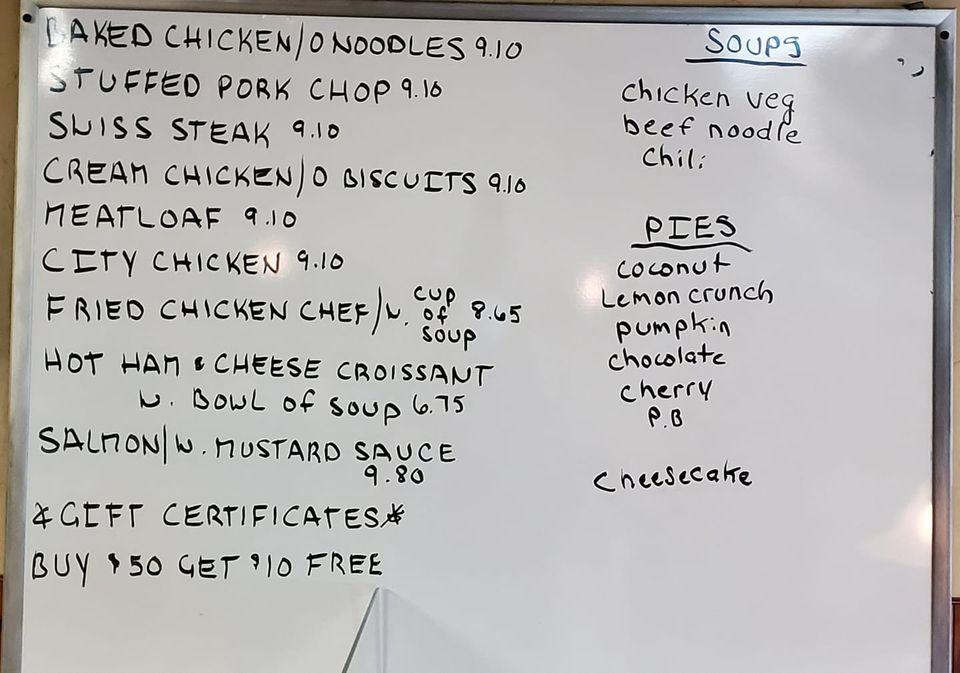 BAKED CHICKEN/O NOODLES 9.10
STUFFED PORK CHOP 9.10
SWISS STEAK 9.10
CREAM CHICKEN/O BISCUITS 9.10
MEATLOAF 9.10
CITY CHICKEN 9.10
FRIED CHICKEN CHEF/W. CUP OF SOUP 8.65
HOT HAM & CHEESE CROISSANT
W. BOWL OF SOUP 6.75
SALMON/W. MUSTARD SAUCE
9.80
*GIFT CERTIFICATES*
BUY $50 GET $10 FREE
SOUPS
chicken veg
beef noodle
chili
PIES
coconut
Lemon crunch
pumpkin
chocolate
cherry
P.B
cheesecake